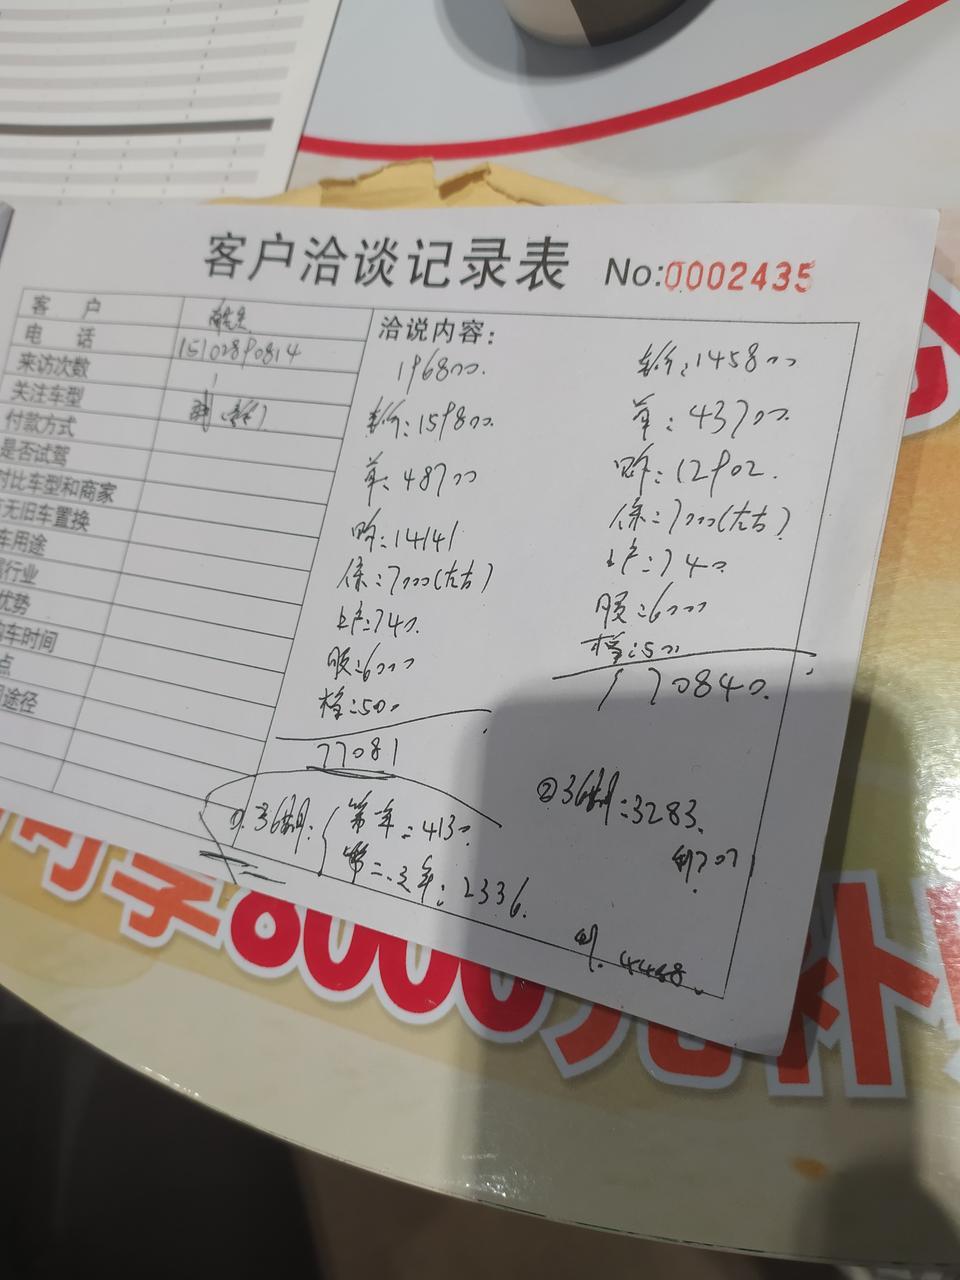 客户洽谈记录表 No:0002435
客 户
电 话 15102890814
来访次数 1
关注车型
付款方式
是否试驾
对比车型和商家
有无旧车置换
车用途
属行业
优势
购车时间
点
途径
洽说内容：
196800.
车价：159800.
首：48700
购：14141
保：7000(左右)
上户：740.
服：6000
档：500
77081
①.36期：
第一年：4130
第二.三年：2336.
车价：145800
首：43700.
购：12902.
保：7000(左右)
上户：740
服：6000
档：500
70840.
②36期：3283.
利707
利.4468.
享8000元补